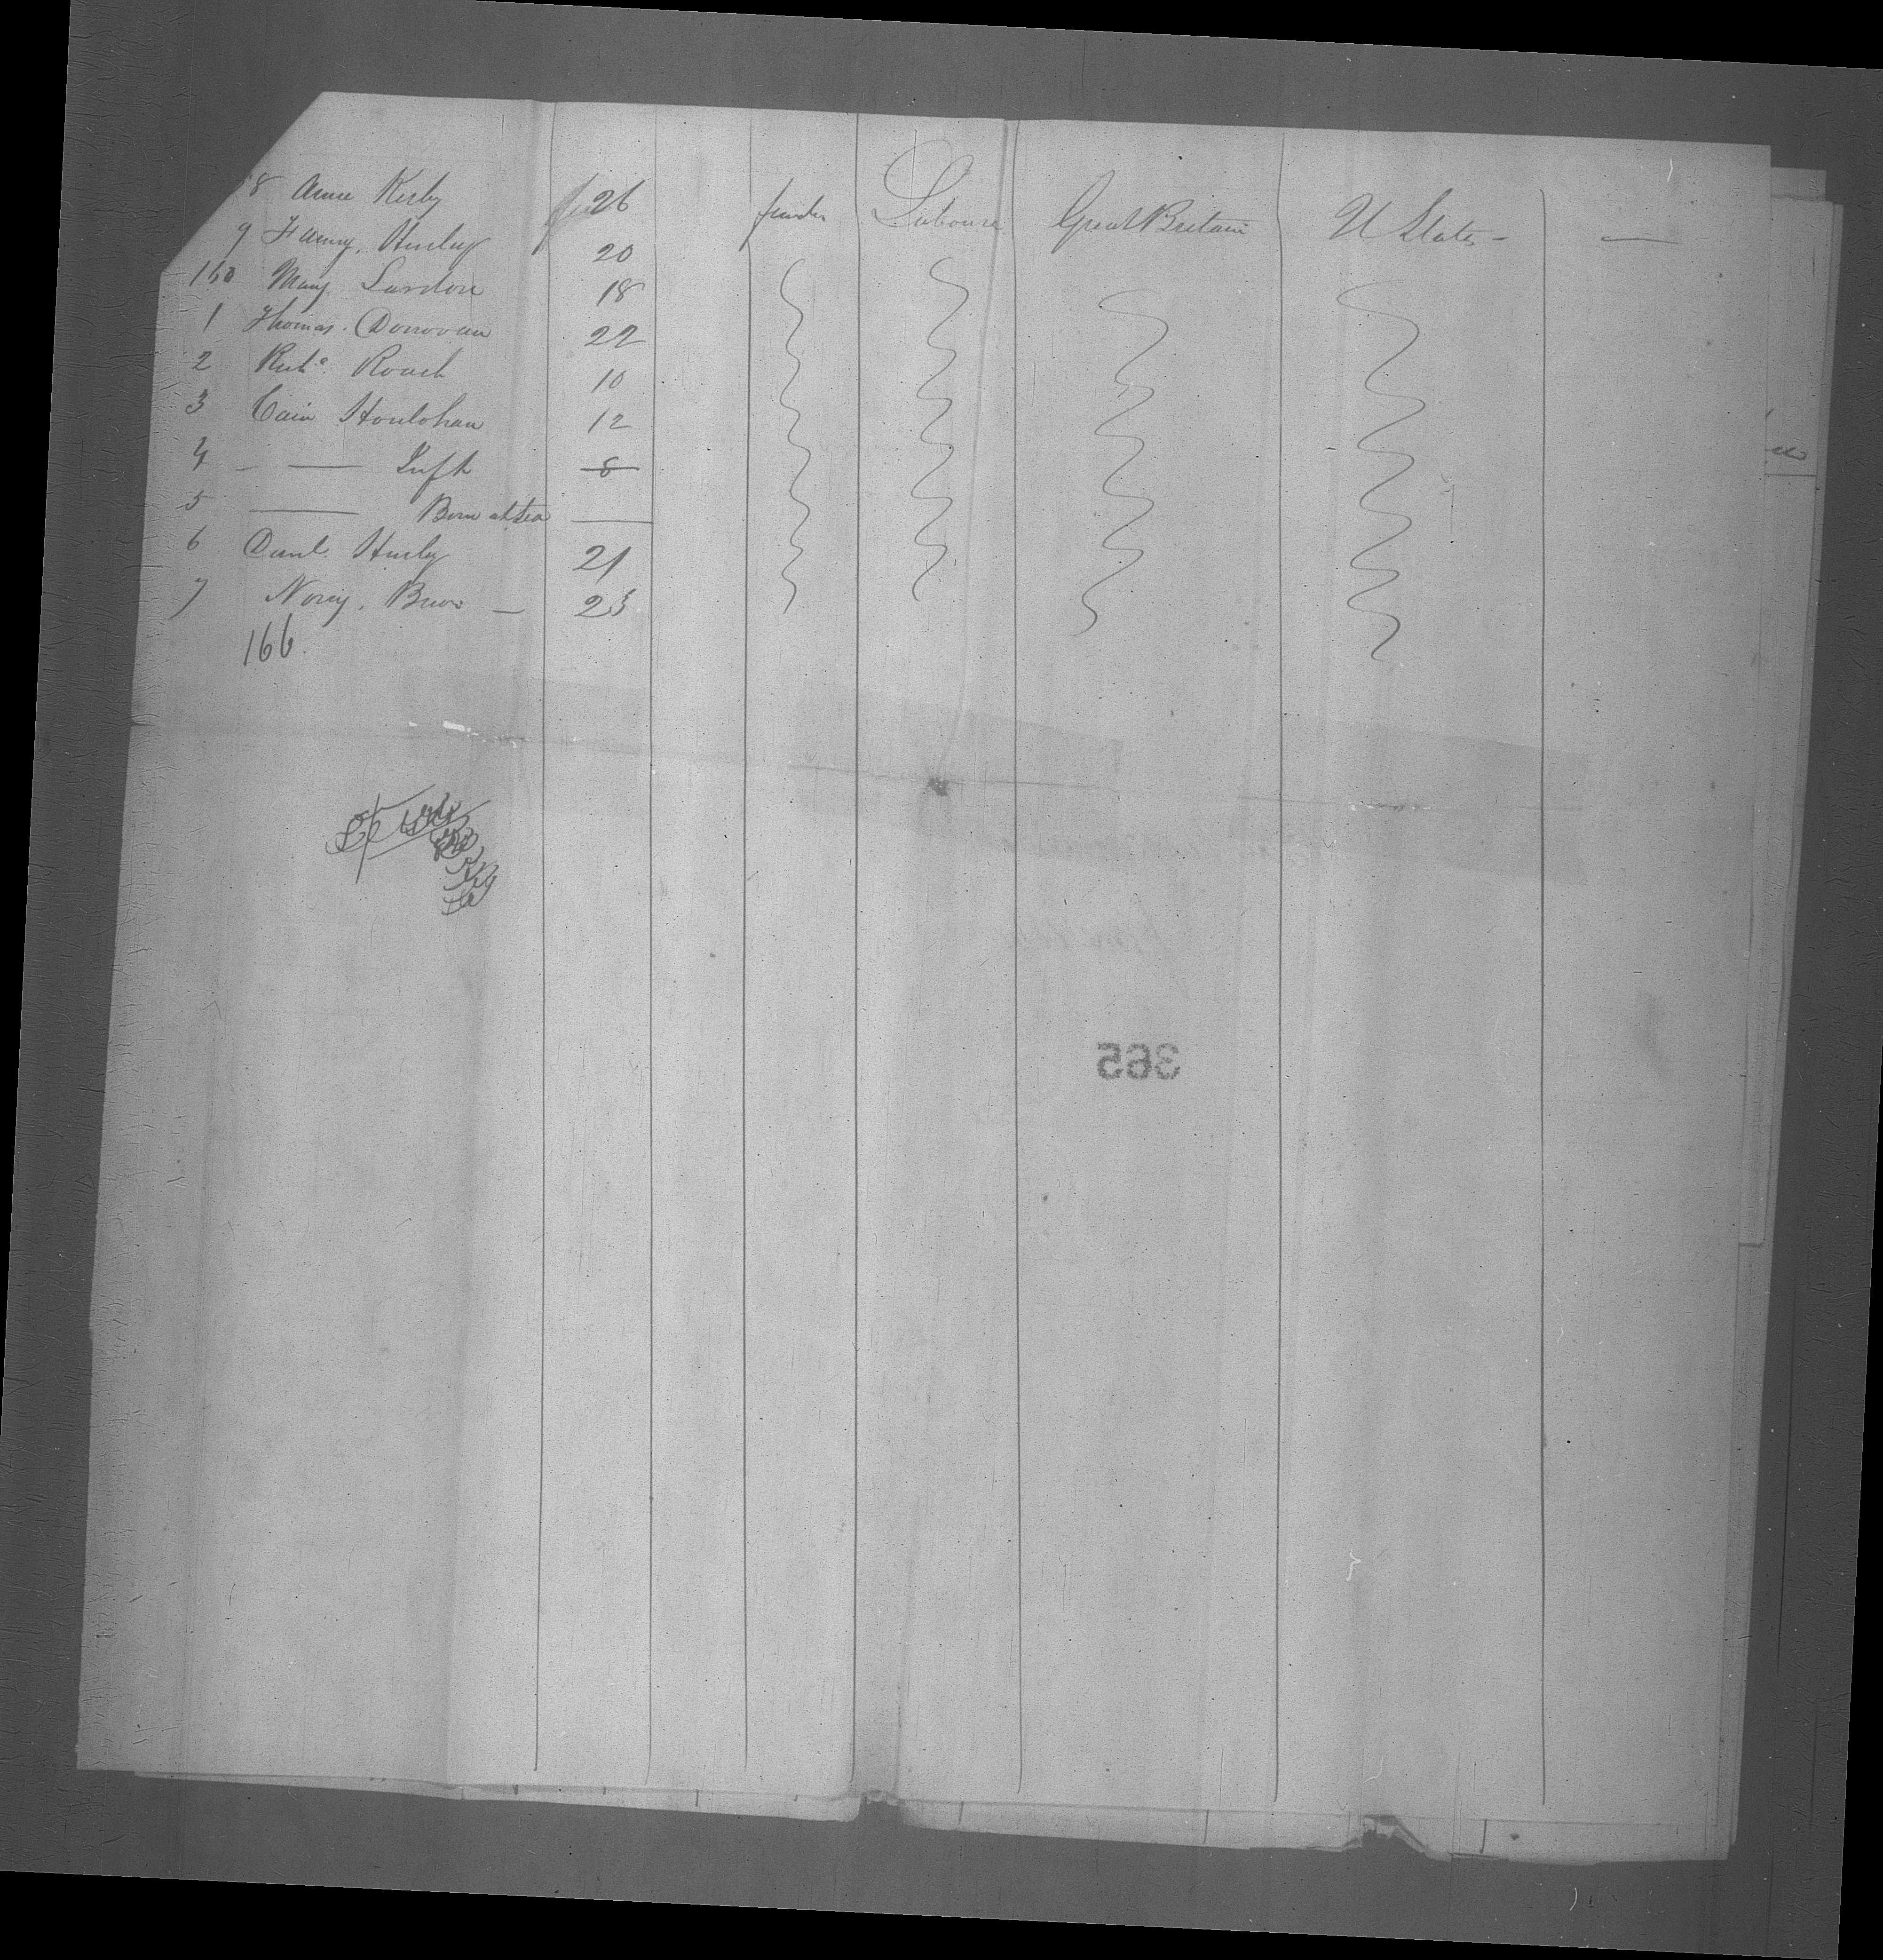 58 Anne Kirby 26 female Laboure Great Britain U States - —
9 Fanny. Hurley 20
160 Mary Landon 18
1 Thomas. Donovan 22
2 Richd. Roach 10
3 Cain Houlohan 12
4 - — Inft 8
5 — Born at Sea —
6 Danl. Hurley 21
7 Nony. Brow — 23
166.
365